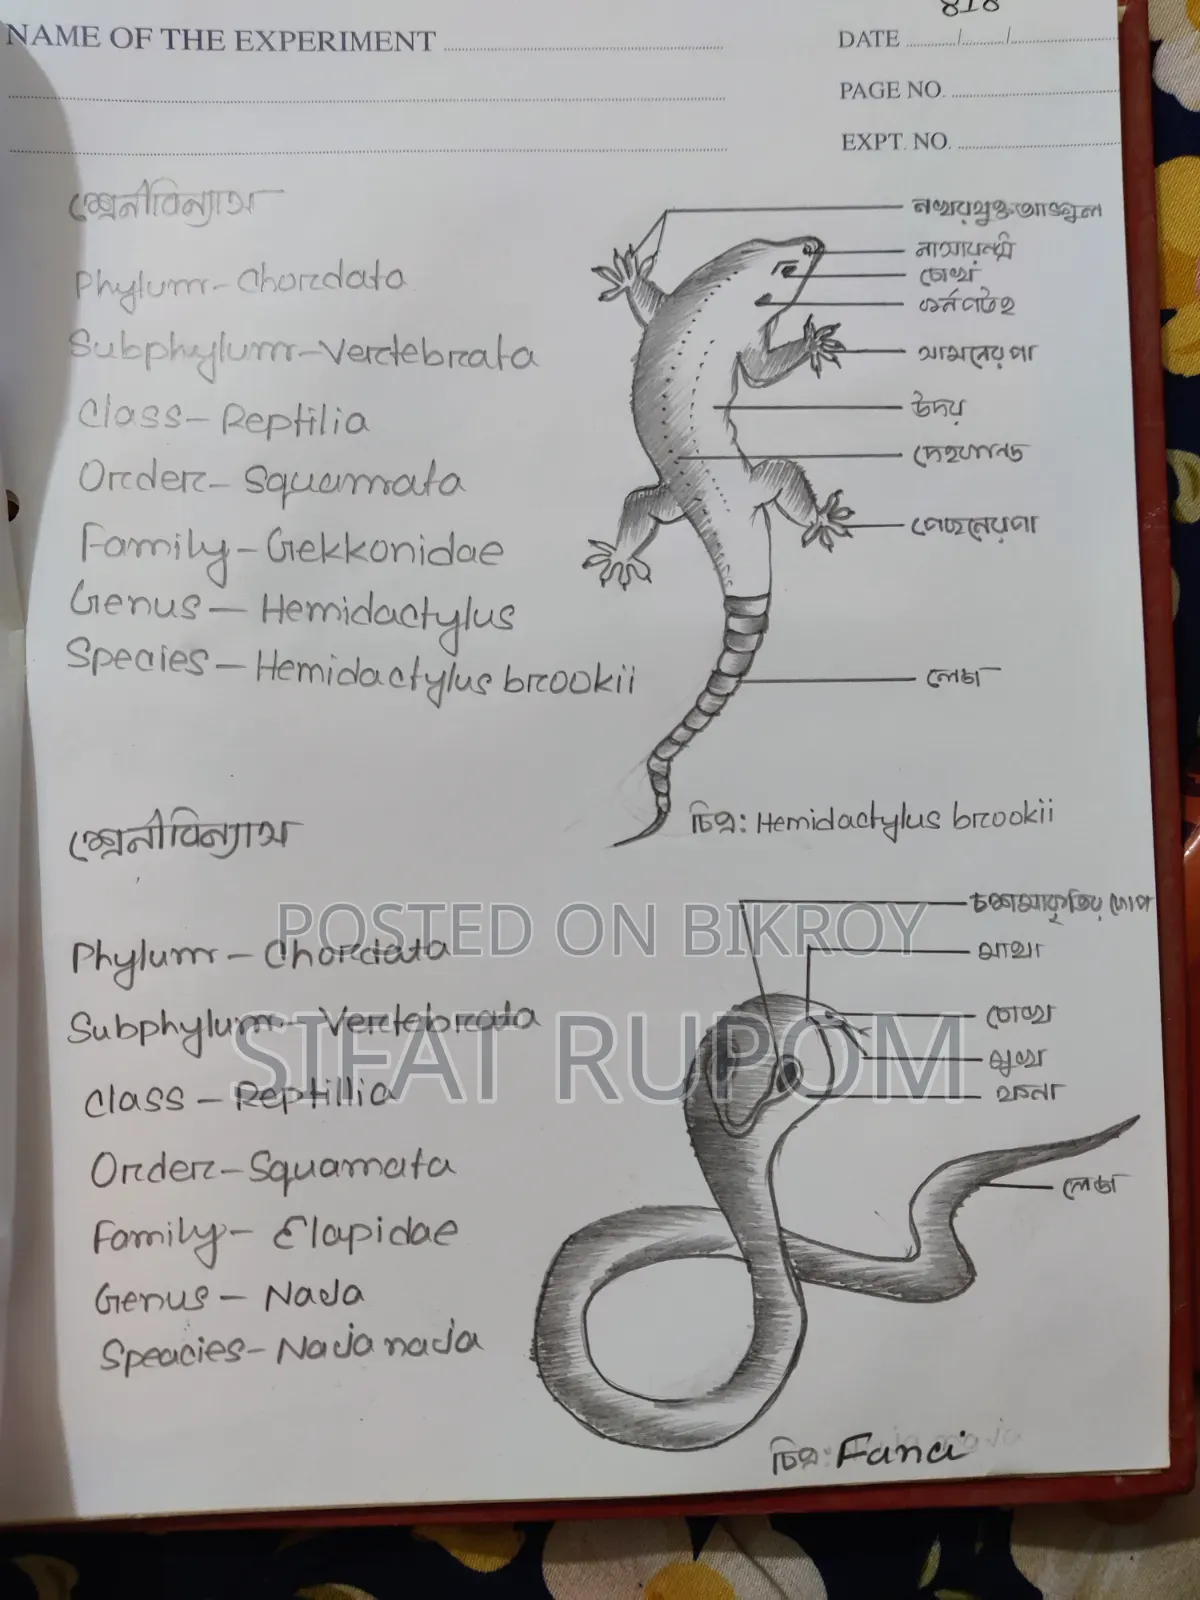 818
NAME OF THE EXPERIMENT
DATE ........../........../..........
PAGE NO.
EXPT. NO.
শ্রেনীবিন্যাস
Phylum - Chordata
Subphylum - Vertebrata
Class - Reptilia
Order - Squamata
Family - Gekkonidae
Genus - Hemidactylus
Species - Hemidactylus brookii
নখরযুক্ত আঙ্গুল
নাসারন্ধ্র
চোখ
কর্নপটহ
সামনের পা
উদর
দেহকান্ড
পেছনের পা
লেজ
চিত্র: Hemidactylus brookii
শ্রেনীবিন্যাস
Phylum - Chordata
Subphylum - Vertebrata
Class - Reptillia
Order - Squamata
Family - Elapidae
Genus - Naja
Speacies - Naja naja
চশমাকৃতির দাগ
মাথা
চোখ
মুখ
ফনা
লেজ
চিত্র: Fanci
POSTED ON BIKROY
SIFAT RUPOM